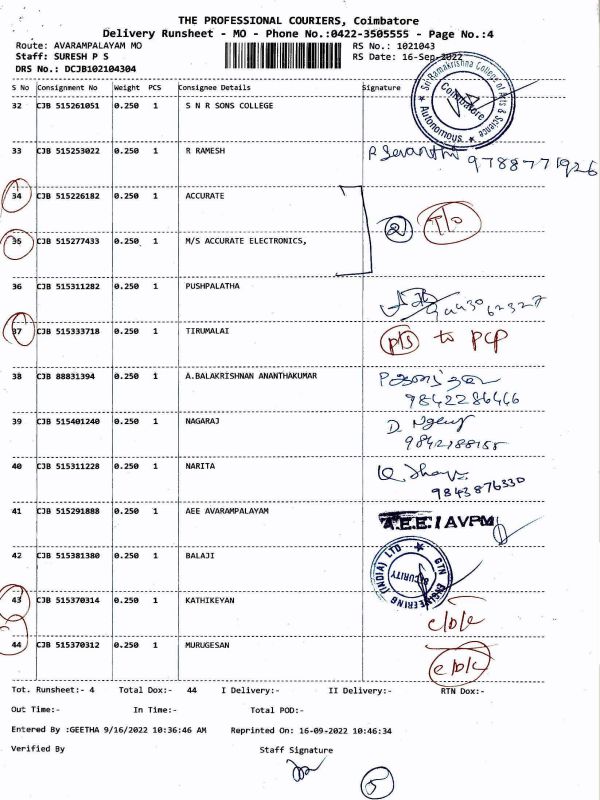 THE PROFESSIONAL COURIERS, Coimbatore
Delivery Runsheet - MO - Phone No.:0422-3505555 - Page No.:4
Route: AVARAMPALAYAM MO RS No.: 1021043
Staff: SURESH P S RS Date: 16-Sep-2022
DRS No.: DCJB102104304
S No Consignment No Weight PCS Consignee Details Signature
Sri Ramakrishna College of Arts & Science
Coimbatore
Autonomous
32 CJB 515261051 0.250 1 S N R SONS COLLEGE
33 CJB 515253022 0.250 1 R RAMESH 9788771926
34 CJB 515226182 0.250 1 ACCURATE
2 T/O
35 CJB 515277433 0.250 1 M/S ACCURATE ELECTRONICS,
36 CJB 515311282 0.250 1 PUSHPALATHA
37 CJB 515333718 0.250 1 TIRUMALAI to PCP
38 CJB 88831394 0.250 1 A.BALAKRISHNAN ANANTHAKUMAR
9842286466
39 CJB 515401240 0.250 1 NAGARAJ
40 CJB 515311228 0.250 1 NARITA
9843876330
41 CJB 515291888 0.250 1 AEE AVARAMPALAYAM A.E.E / AVPM
42 CJB 515381380 0.250 1 BALAJI
GTN ENGINEERING (INDIA) LTD
SECURITY
43 CJB 515370314 0.250 1 KATHIKEYAN
44 CJB 515370312 0.250 1 MURUGESAN
Tot. Runsheet:- 4 Total Dox:- 44 I Delivery:- II Delivery:- RTN Dox:-
Out Time:- In Time:- Total POD:-
Entered By :GEETHA 9/16/2022 10:36:46 AM Reprinted On: 16-09-2022 10:46:34
Verified By Staff Signature
5